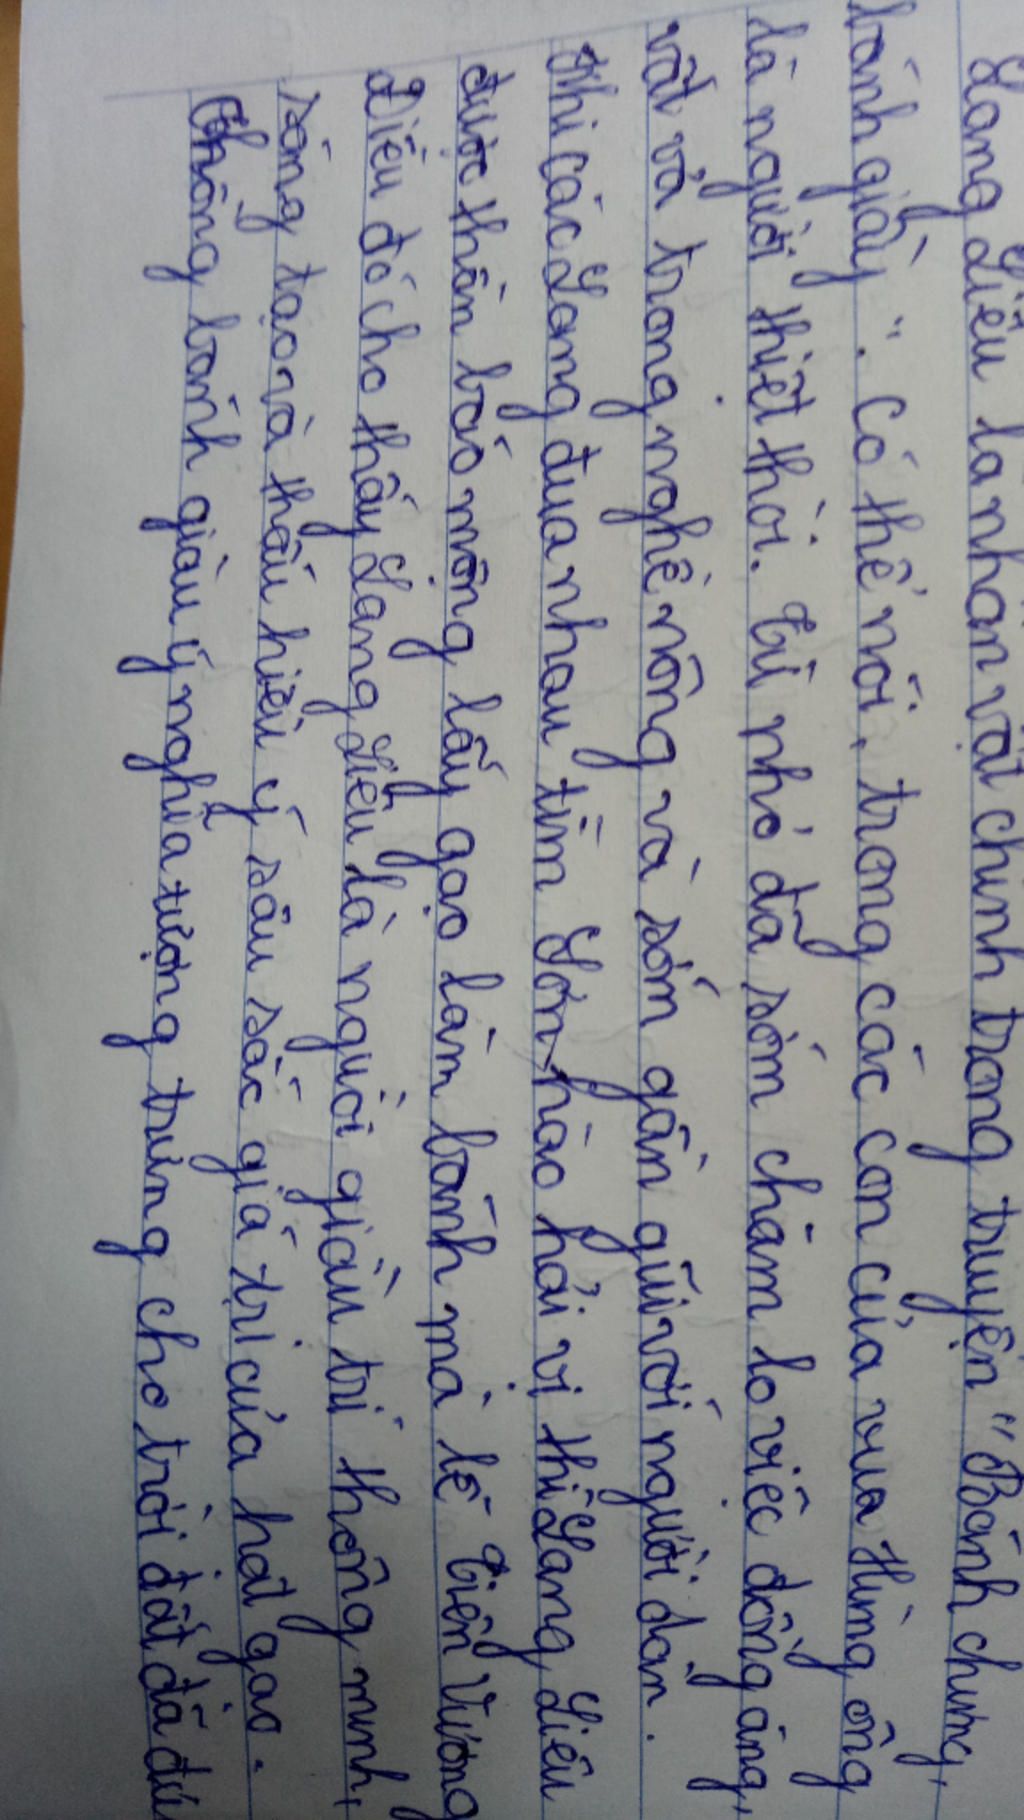 Lang Liêu là nhân vật chính trong truyện "Bánh chưng,
bánh giầy". Có thể nói, trong các con của vua Hùng ông
là người thiệt thòi. Từ nhỏ đã sớm chăm lo việc đồng áng,
vất vả trong nghề nông và sớm gần gũi với người dân.
Khi các Lang đua nhau tìm sơn hào hải vị thì Lang Liêu
được thần báo mộng lấy gạo làm bánh mà lễ Tiên Vương
Điều đó cho thấy Lang Liêu là người giàu trí thông minh,
sáng tạo và thấu hiểu ý sâu sắc giá trị của hạt gạo.
Chồng bánh giàu ý nghĩa tượng trưng cho trời đất đã